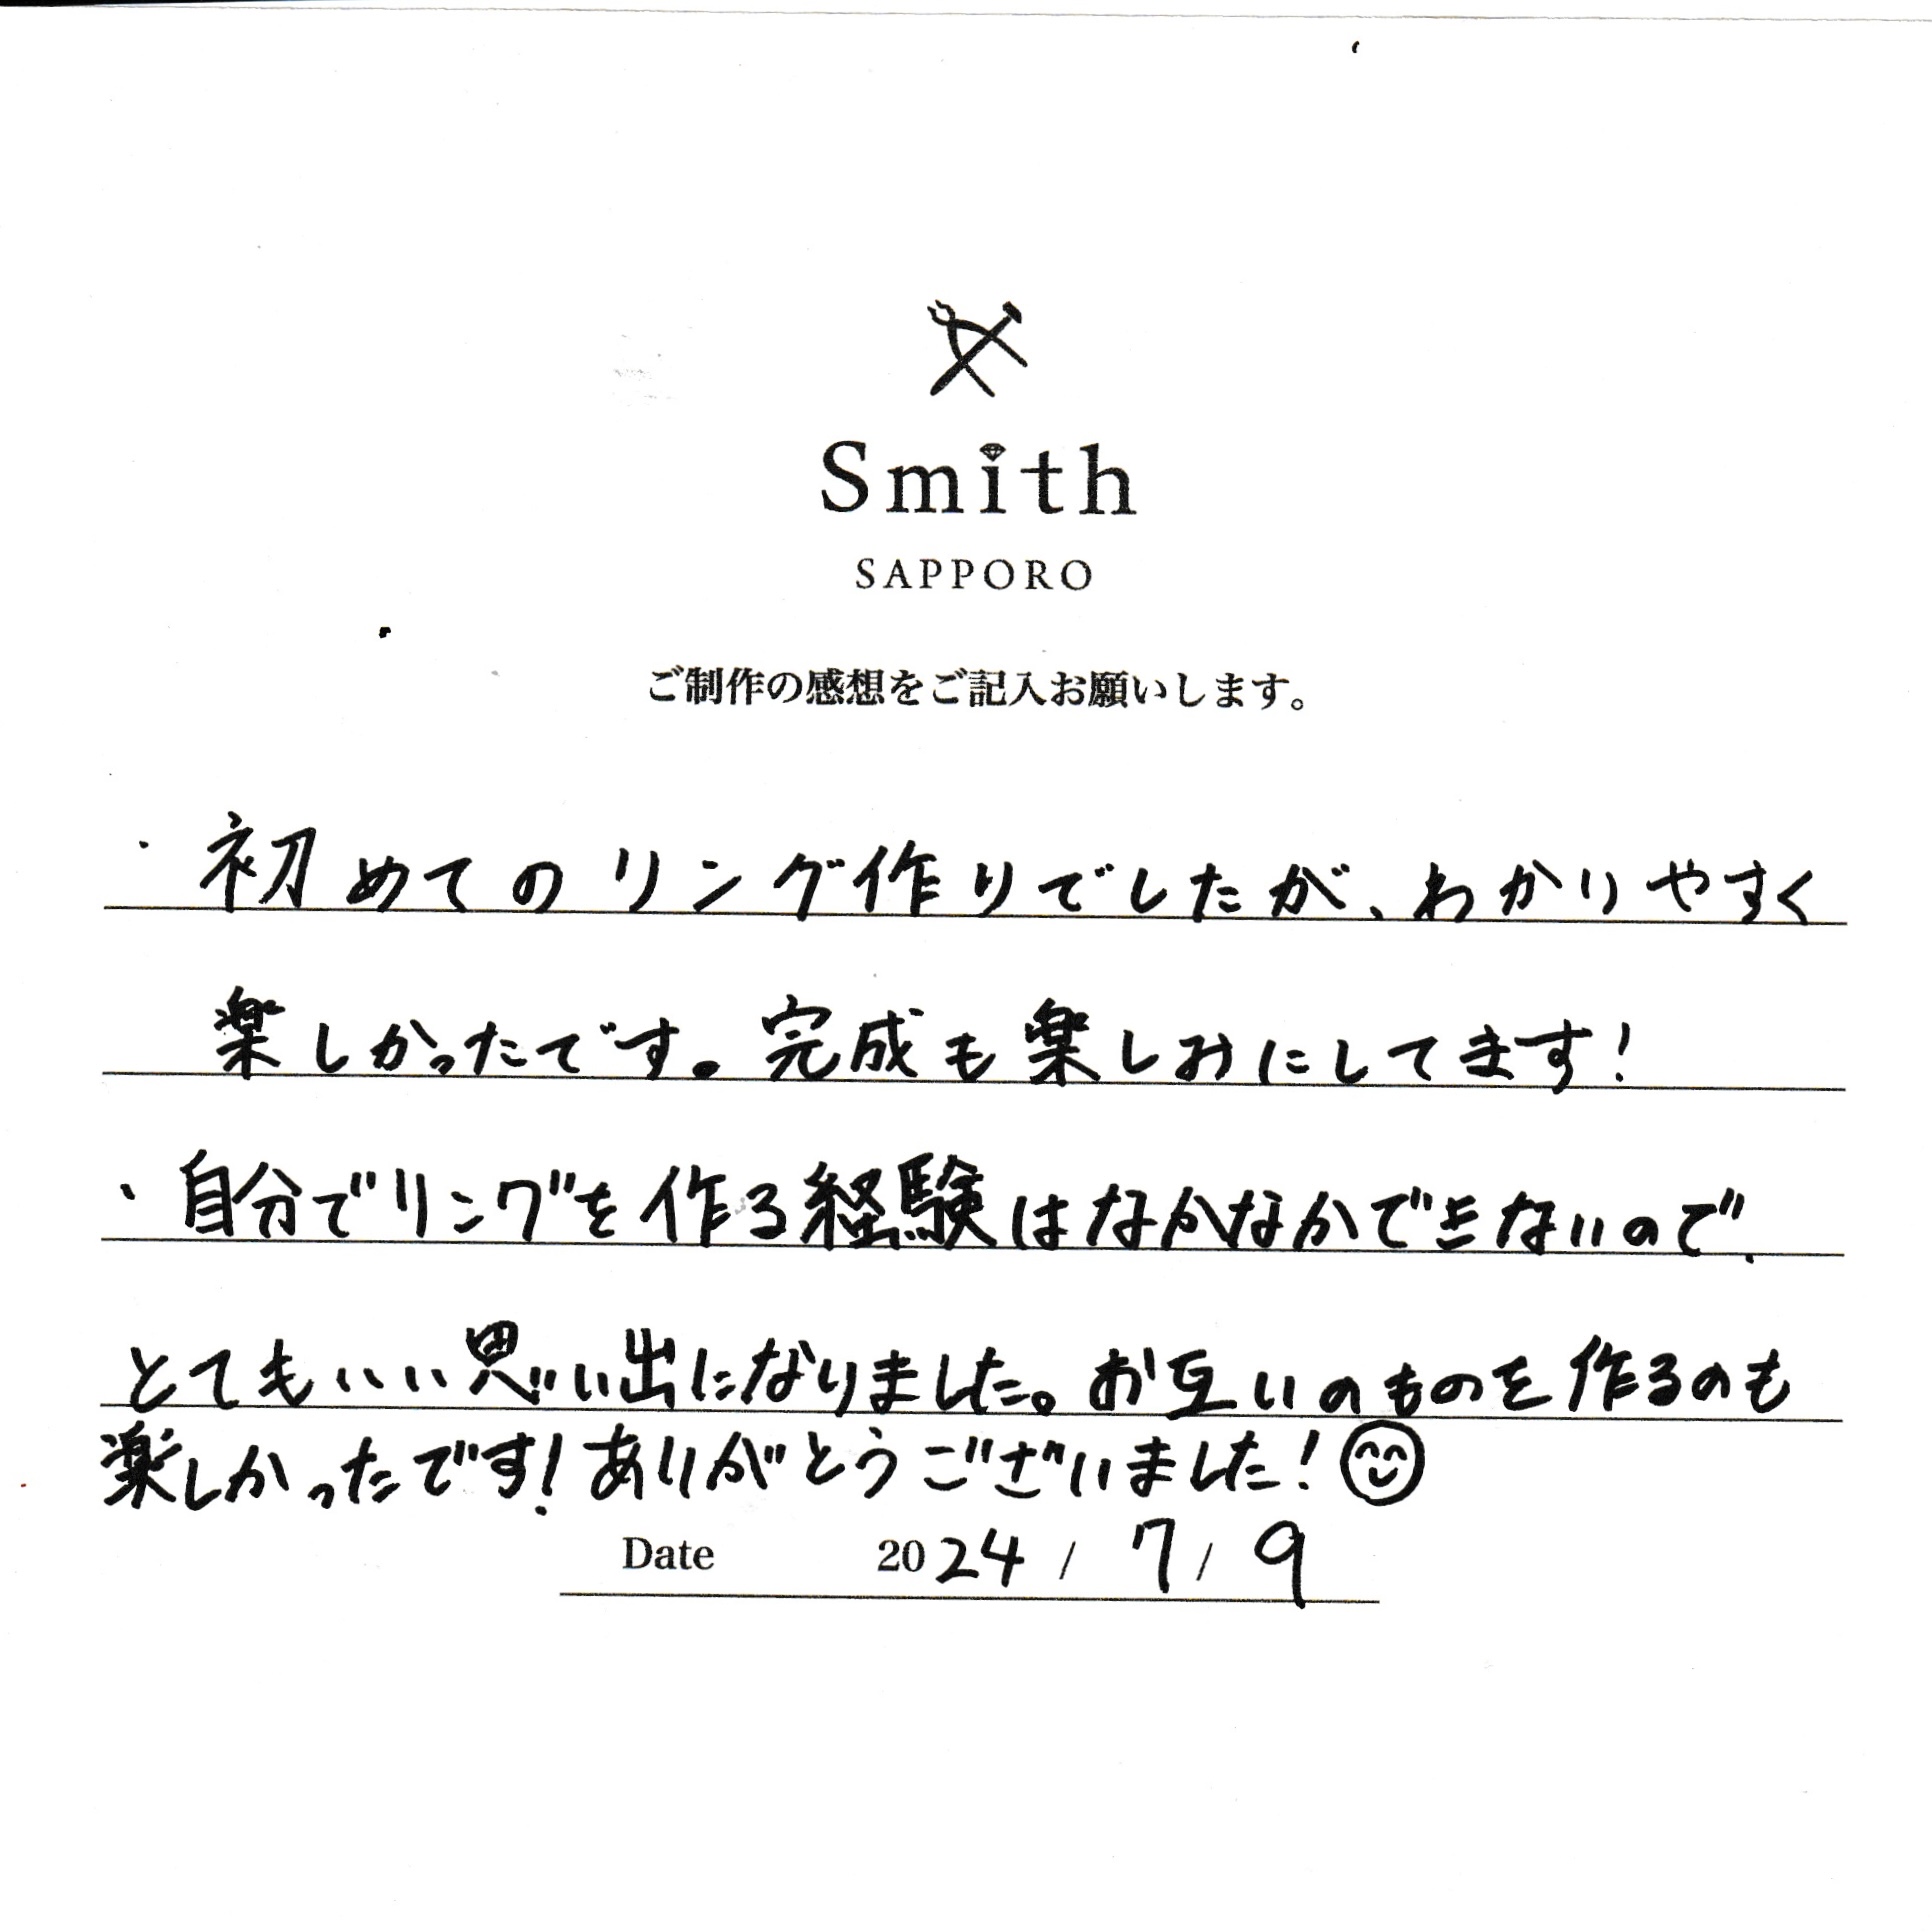 Smith
SAPPORO
ご制作の感想をご記入お願いします。
・初めてのリング作りでしたが、わかりやすく
楽しかったです。完成も楽しみにしてます!
・自分でリングを作る経験はなかなかできないので、
とてもいい思い出になりました。お互いのものを作るのも
楽しかったです!ありがとうございました!
Date 2024 / 7 / 9